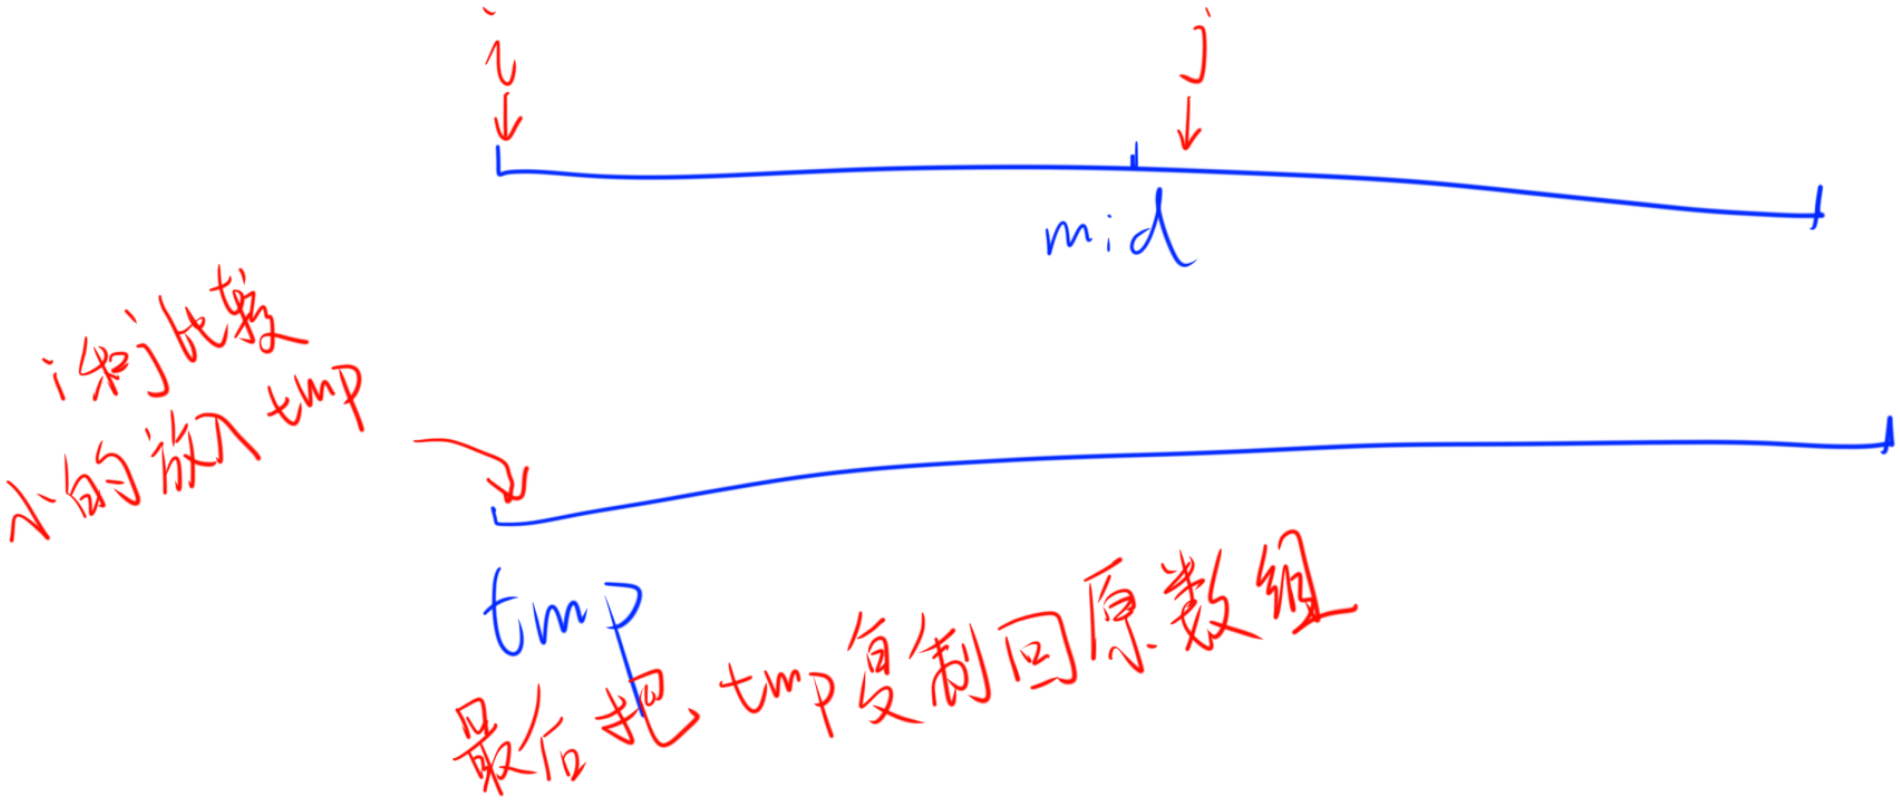 i
j
mid
i和j比较
小的放入tmp
tmp
最后把tmp复制回原数组